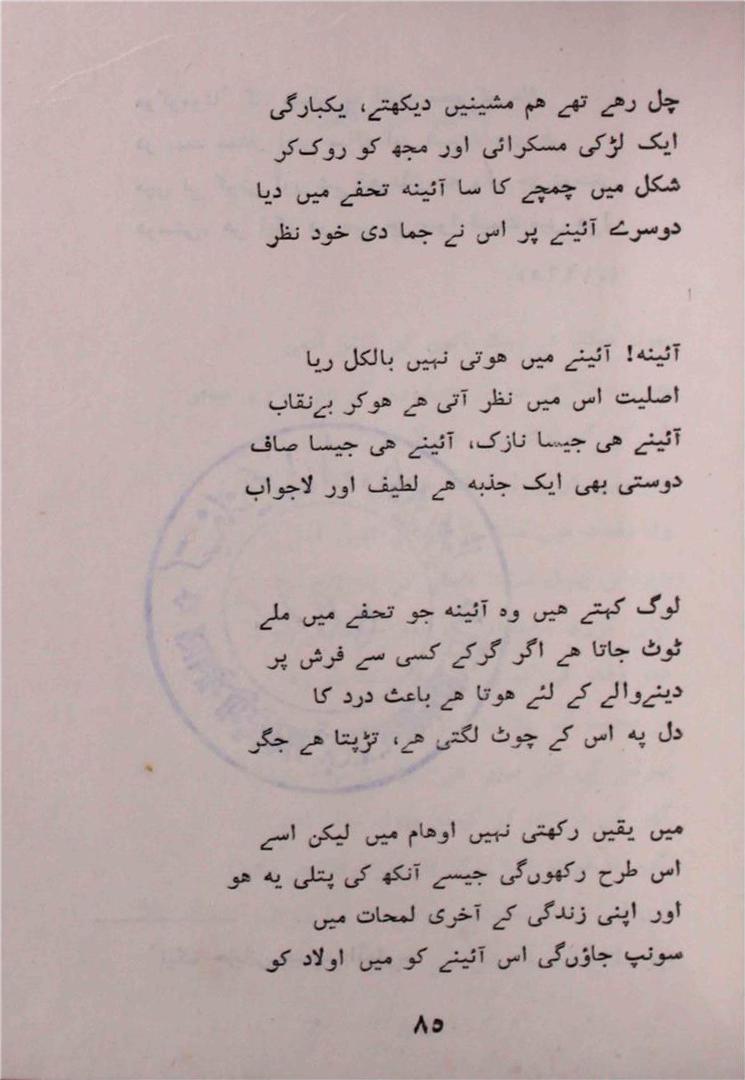 چل رهے تهے هم مشینیں دیکهتے، یکبارگی
ایک لڑکی مسکرائی اور مجھ کو روک‌کر
شکل میں چمچے کا سا آئینه تحفے میں دیا
دوسرے آئینے پر اس نے جما دی خود نظر
آئینه! آئینے میں هوتی نہیں بالکل ریا
اصلیت اس میں نظر آتی هے هوکر بے‌نقاب
آئینے هی جیسا نازک، آئینے هی جیسا صاف
دوستی بھی ایک جذبه هے لطیف اور لاجواب
لوگ کہتے هیں وه آئینه جو تحفے میں ملے
ٹوٹ جاتا هے اگر گرکے کسی سے فرش پر
دینے‌والے کے لئے هوتا هے باعث درد کا
دل په اس کے چوٹ لگتی هے، تڑپتا هے جگر
میں یقیں رکھتی نہیں اوهام میں لیکن اسے
اس طرح رکھوں‌گی جیسے آنکھ کی پتلی یه هو
اور اپنی زندگی کے آخری لمحات میں
سونپ جاؤں‌گی اس آئینے کو میں اولاد کو
۸۵